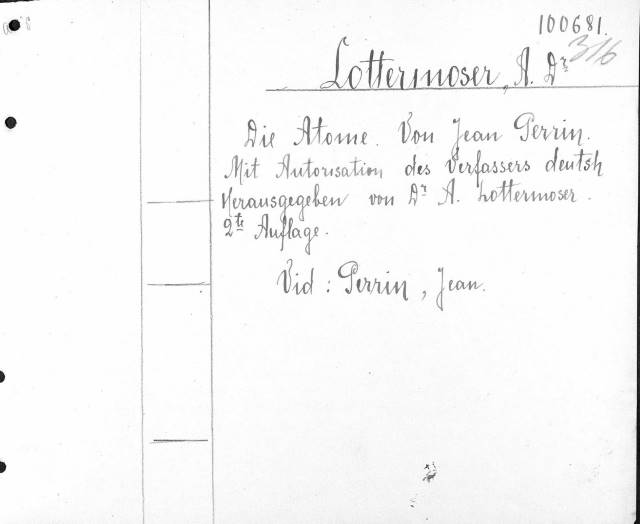 100681.
316
Lottermoser, A. Dr
Die Atome. Von Jean Perrin.
Mit Autorisation des Verfassers deutsh
Herausgegeben von Dr A. Lottermoser.
2te Auflage.
Vid: Perrin, Jean.